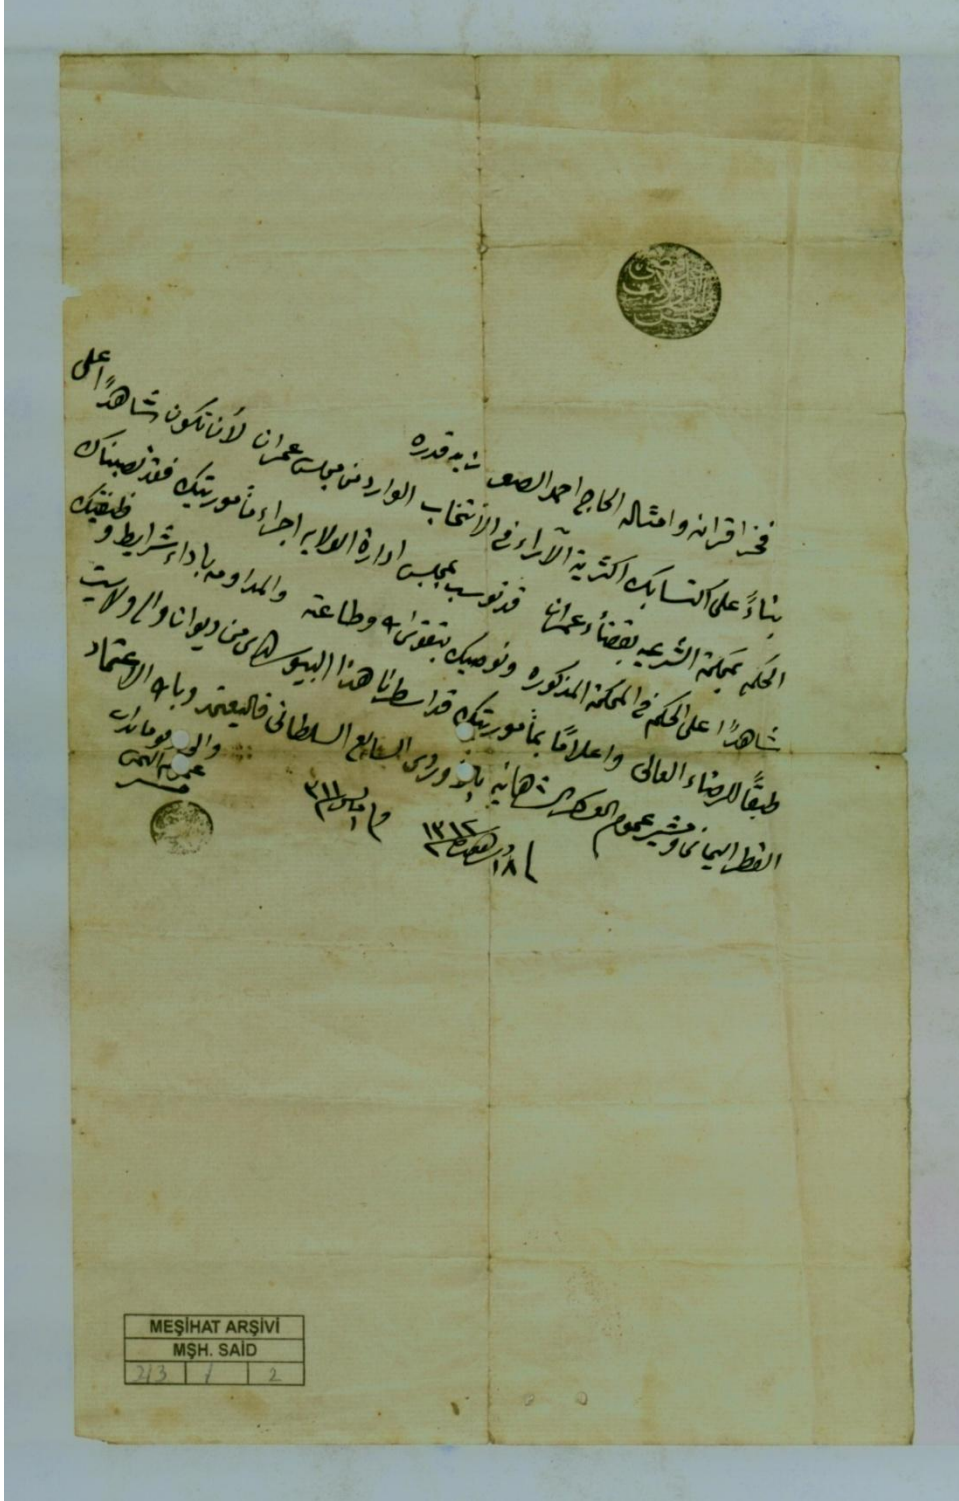 فخر اقرانه وامثاله الحاج احمد الصعر زيد قدره
بناءً على اكتسابك اكثرية الآراء في الأنتخاب الوارد من مجلس عمران لأن تكون شاهدًا على
الحكم بمحكمة الشرعيه بقضاء عمران قد توسب بمجلس ادارة الولايه اجراء مأموريتك فقد نصبناك
شاهدًا على الحكم في المحكمة المذكوره ونوصيك بتقوى الله وطاعته والمداومه باداء شرايط وظيفتك
طبقًا للرضاء العالى واعلامًا بمأموريتك قد اسطرنا هذا البيورلدى من ديوان والى ولايت
القطر اليمانى ومشير عموم العسكر الشاهانيه بالاوردى السابع السلطانى فاليعتمد وبالله الاعتماد
والى وقوماندان
عموم اليمن
مشير
١٣١٢
MEŞİHAT ARŞİVİ
MŞH. SAİD
213 1 2